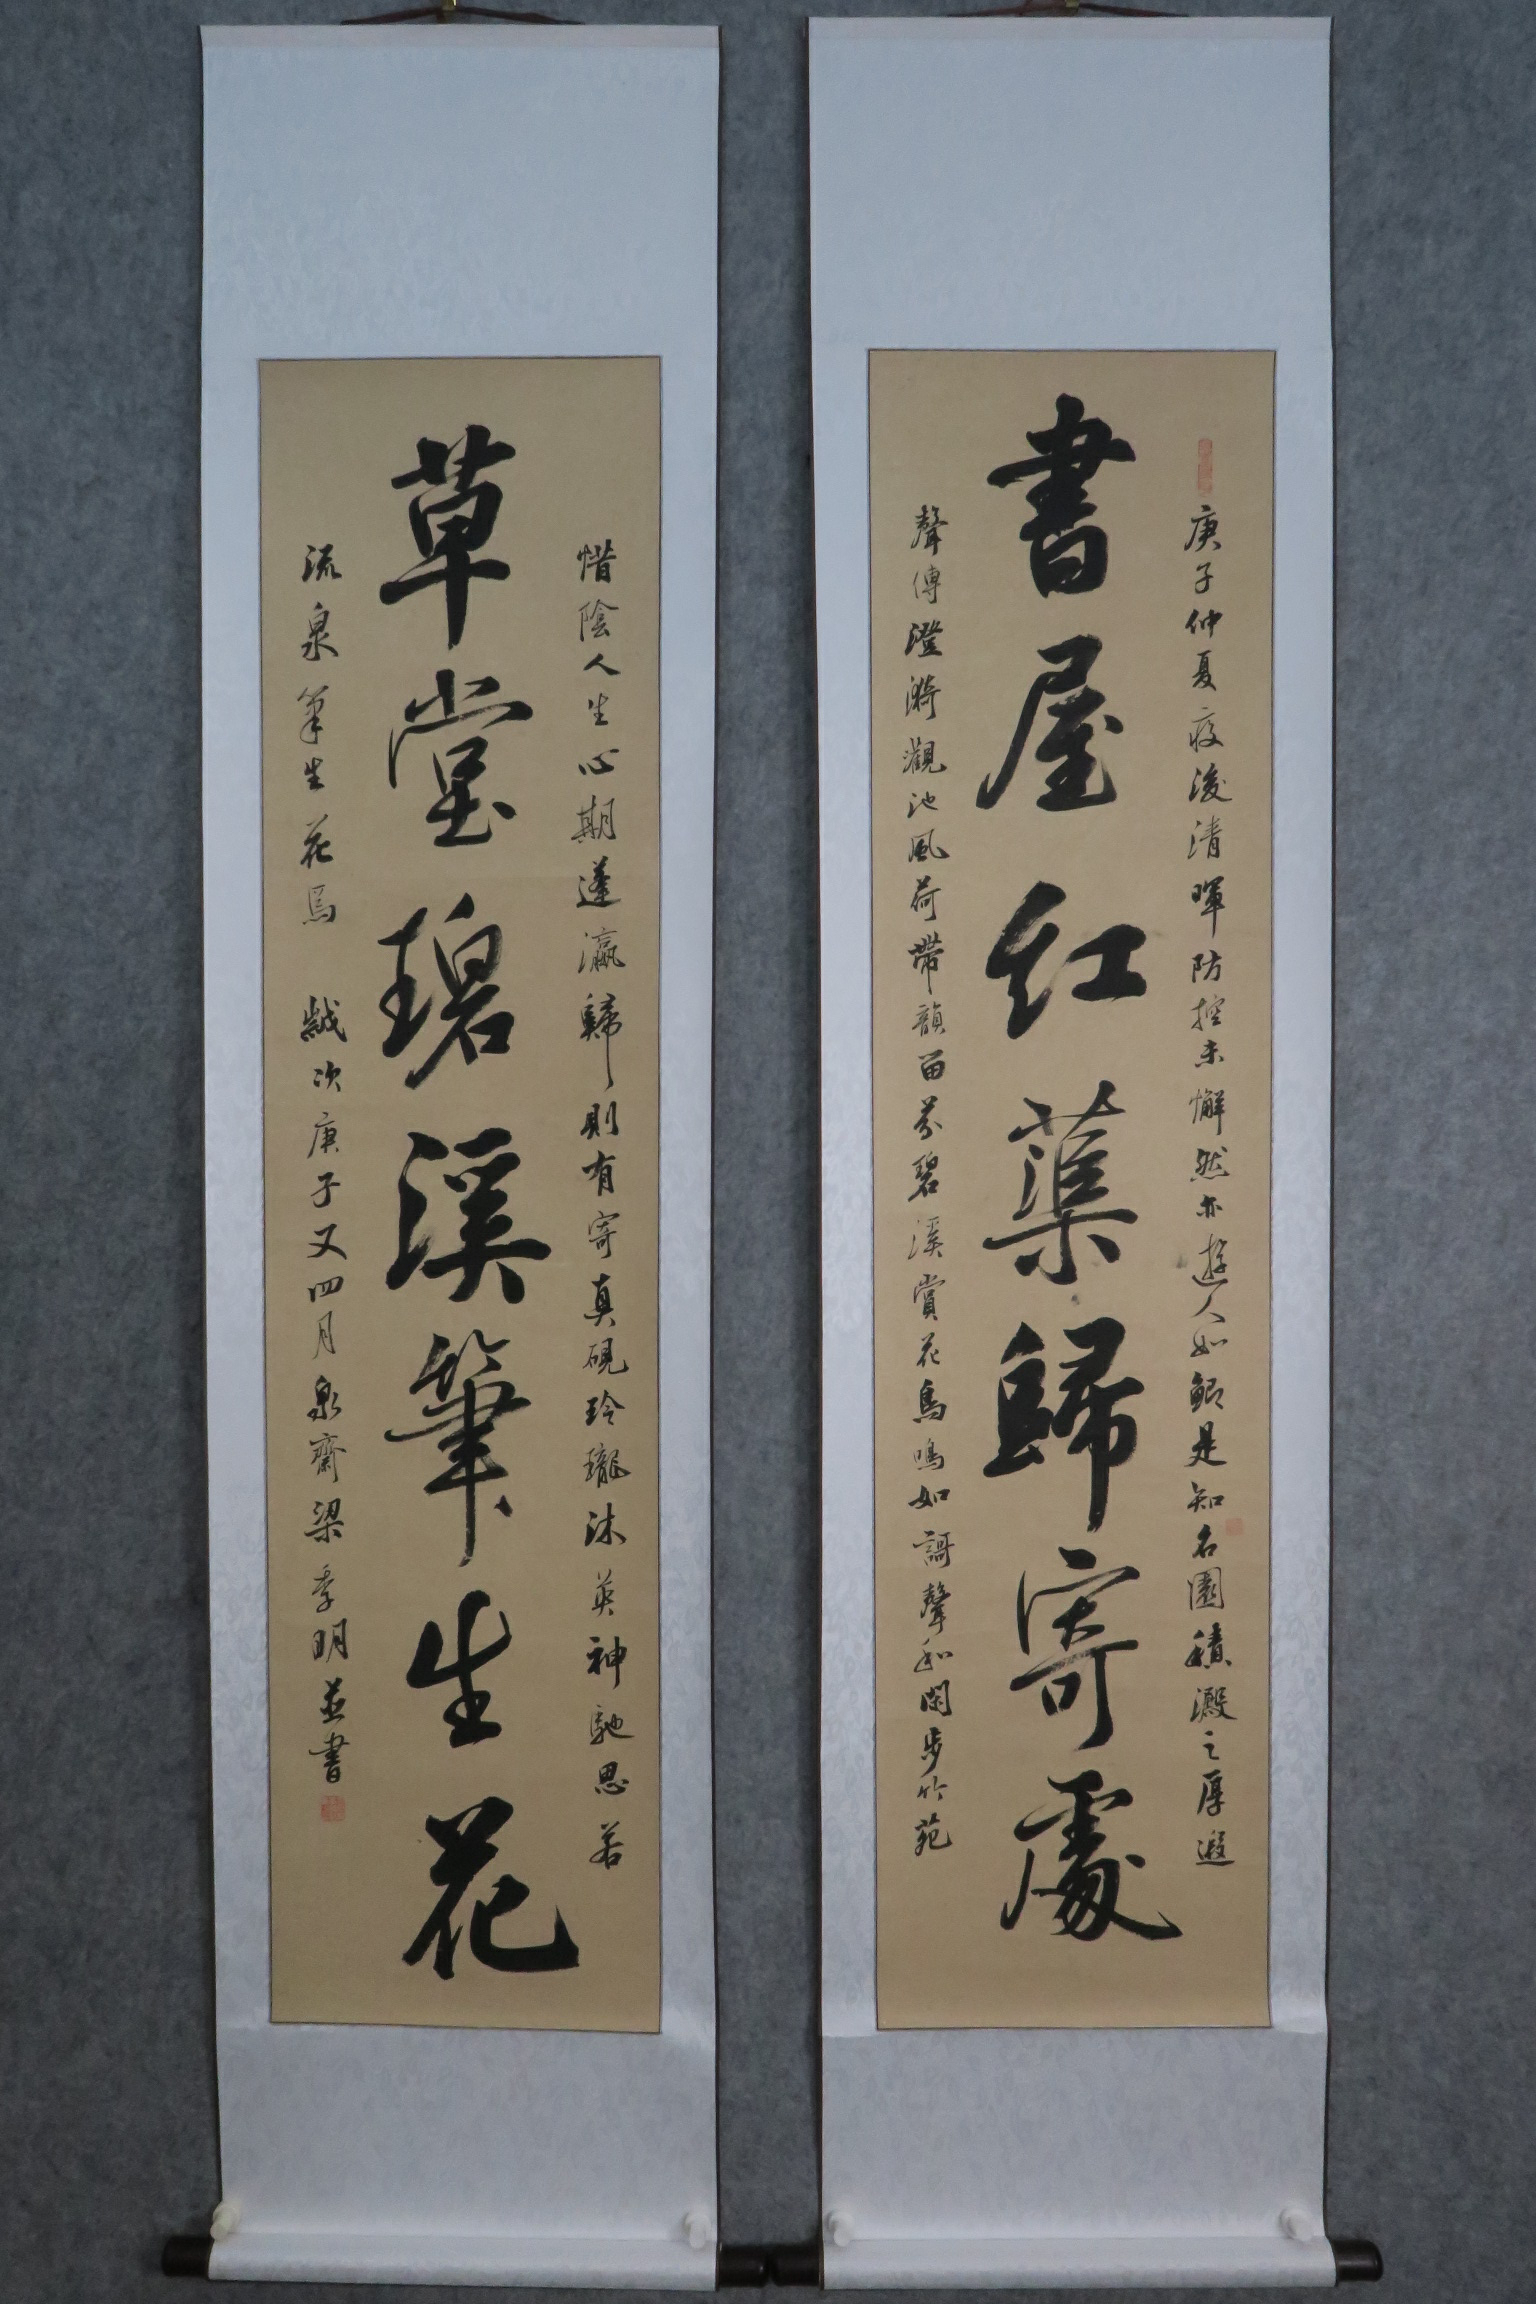 庚子仲夏疫後清暉防控未懈然亦遊人如鯽是知名園積澱之厚遐
書屋紅蕖歸寄處
聲傳澄漪觀池風荷帶韻留芬碧溪賞花鳥鳴如謌聲和閑步竹苑
惜陰人生心期蓬瀛歸則有寄真硯玲瓏沐英神馳思若
草堂碧溪筆生花
流泉筆生花焉 歲次庚子又四月泉齋梁季明並書